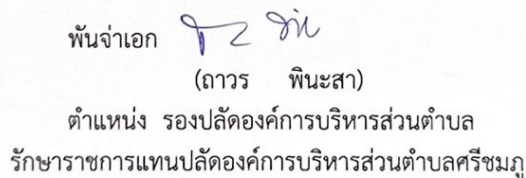 พันจ่าเอก
(ถาวร พินะสา)
ตำแหน่ง รองปลัดองค์การบริหารส่วนตำบล
รักษาราชการแทนปลัดองค์การบริหารส่วนตำบลศรีชมภู